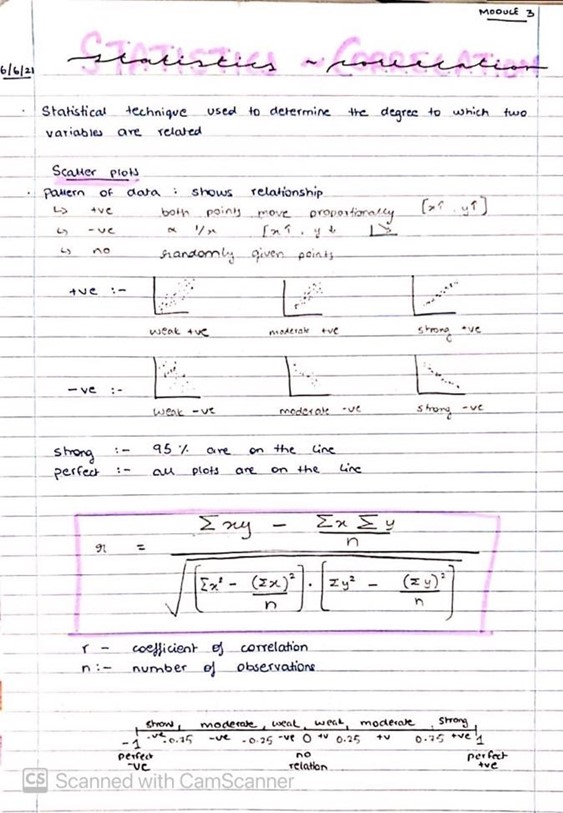 MODULE 3
STATISTICS ~ CORRELATION
statistics ~ correlation
6/6/21
· Statistical technique used to determine the degree to which two
variables are related
Scatter plots
· Pattern of data : shows relationship
↳ +ve both points move proportionally [x↑, y↑]
↳ -ve ∝ 1/x [x↑, y↓
↳ no randomly given points
+ve :-
weak +ve moderate +ve strong +ve
-ve :-
weak -ve moderate -ve strong -ve
strong :- 95% are on the line
perfect :- all plots are on the line
r = (Σxy - (Σx Σy)/n) / √([Σx² - (Σx)²/n] · [Σy² - (Σy)²/n])
r - coefficient of correlation
n :- number of observations
strong, moderate, weak, weak, moderate, strong
-1 -ve -0.75 -ve -0.25 -ve 0 +v 0.25 +v 0.75 +ve 1
perfect -ve no relation perfect +ve
CS Scanned with CamScanner